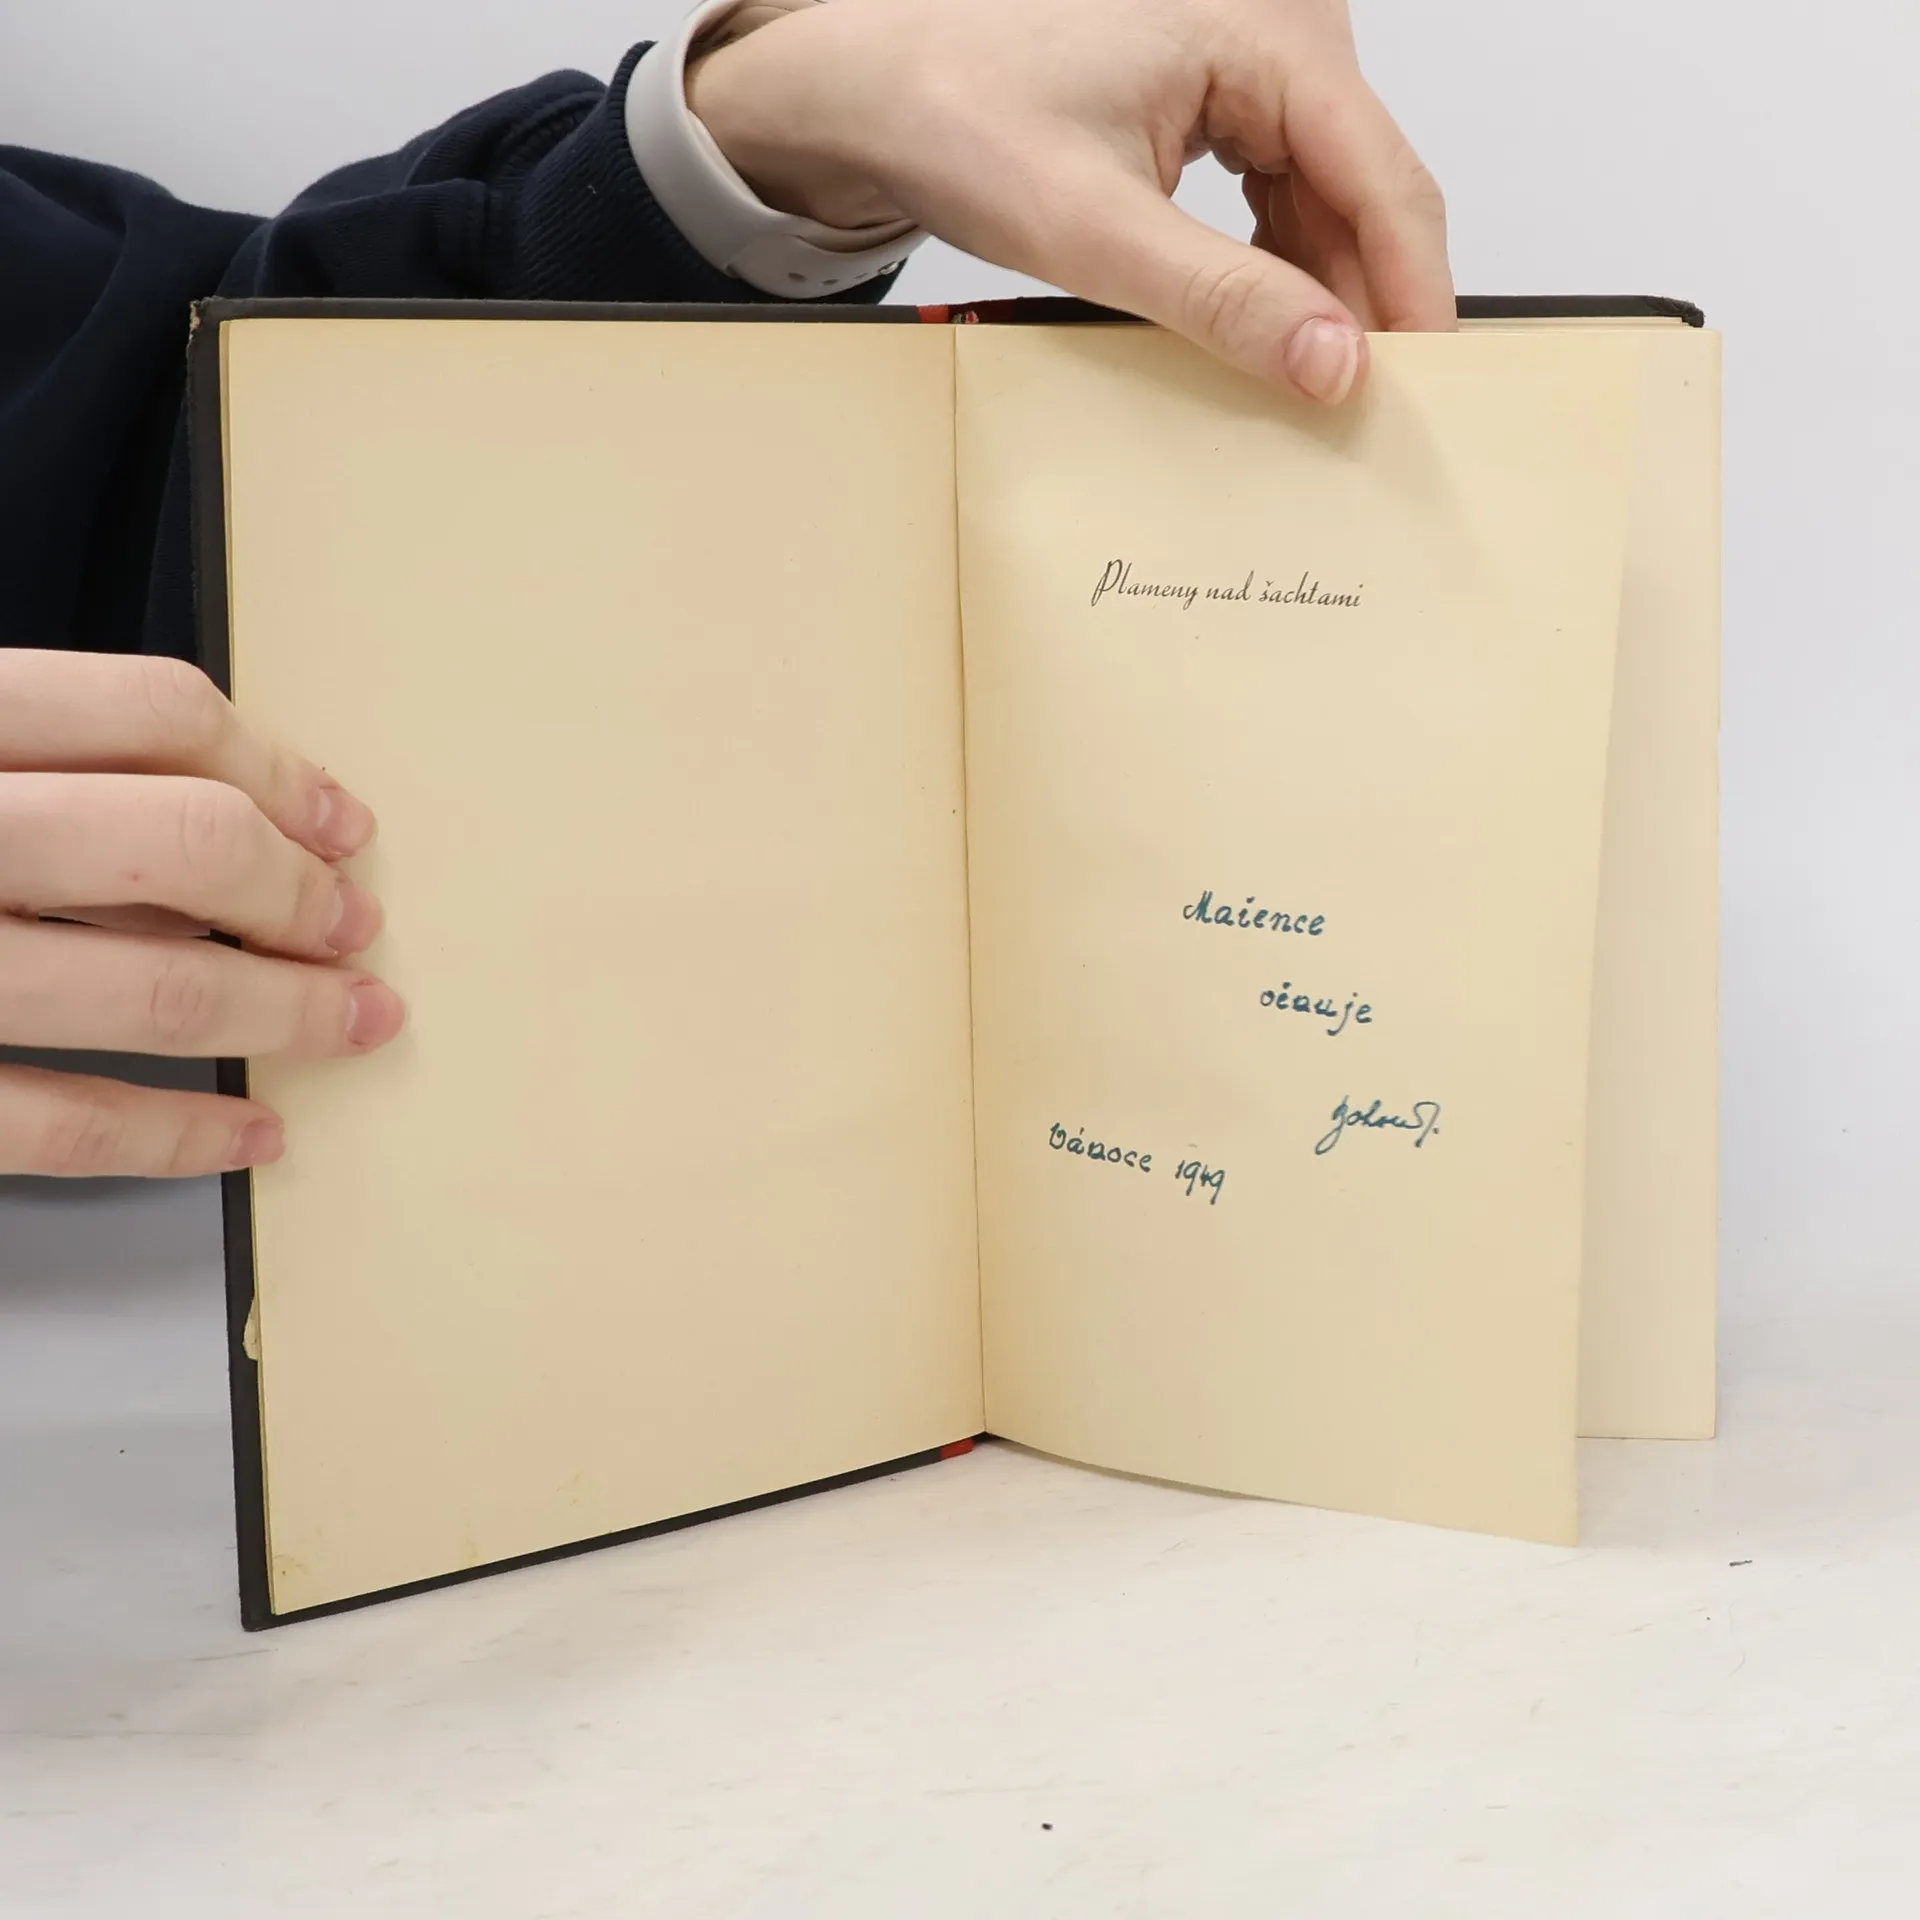 Plameny nad šachtami
Mařence
věnuje
Vánoce 1949